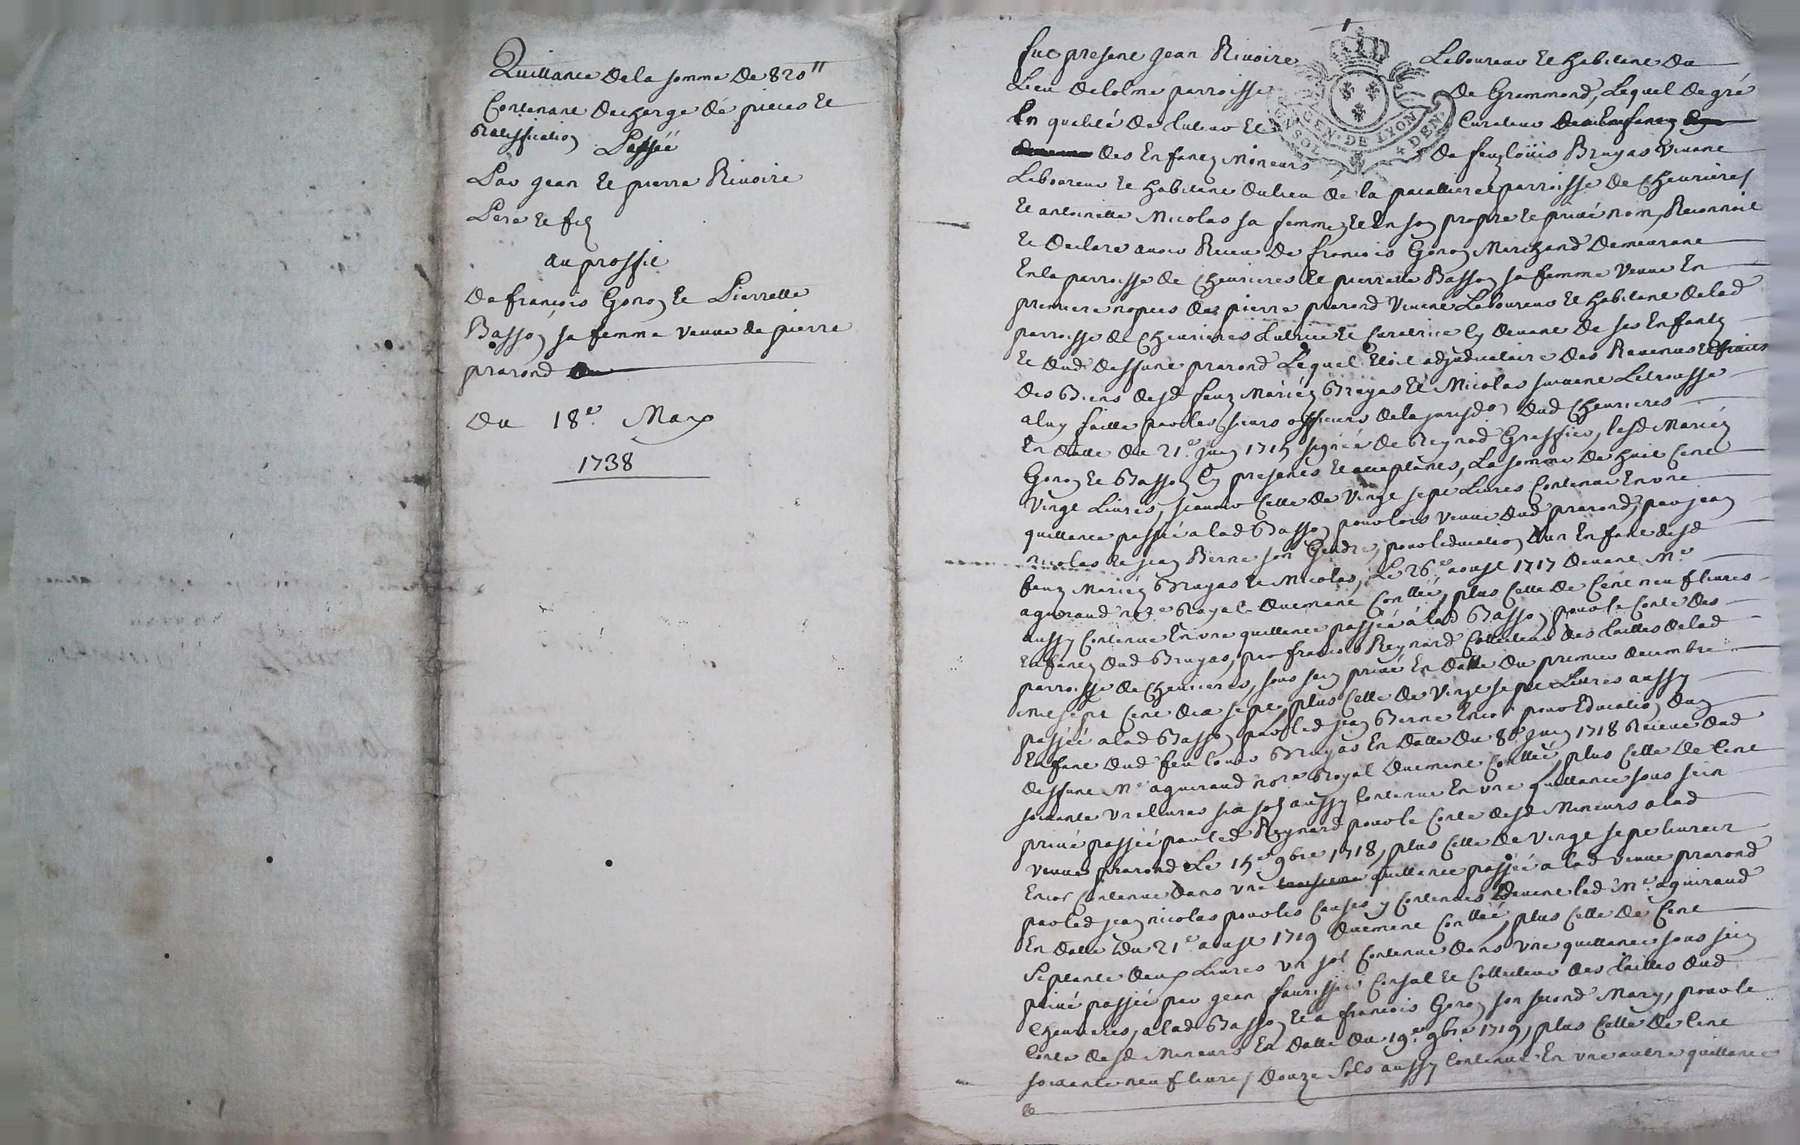 Quittance de la somme de 820"
Contenant decharge de pieces et
Ratiffication Passée
Par jean et pierre Rivoire
Pere et fils
au proffit
de francois Goron et Pierrette
Basson sa femme veuve de pierre
prarond
Du 18e. Mars
1738
fut present jean Rivoire Laboureur et habitant du
Lieu de parroisse de Grammond, Lequel de gré
En qualité de tuteur et Curateur
des Enfans Mineurs de feuz Loüis Bruyas vivant
Laboureur et habitant du lieu de la parroisse de Chevrieres
Et antoinette Nicolas sa femme, et En son propre et privé nom, Reconnoit
Et declare avoir Receu de francois Goron Marchand demeurant
En la parroisse de Chevrieres et pierrette Basson sa femme veuve En
premiere nopces de pierre prarond vivant Laboureur et habitant de lad
parroisse de Chevrieres tutrice et Curatrice cy devant de ses Enfants
Et dud deffunt prarond Lequel Etoit adjudicataire des Revenus et fruits
des Biens desd feuz Mariés Bruyas et Nicolas suivant
a luy faitte par les sieurs officiers de la jurisdon dud Chevrieres
En datte du 21e juin 1715 signée de Reynod Greffier, lesd Mariés
Goron et Basson cy presents et acceptants, La somme de huit Cent
Vingt Livres, scavoir Celle de vingt sept Livres Contenue En une
quittance passée a lad Basson pour lors veuve dud prarond, par jean
nicolas et jean Berne son Gendre, pour leducation dun Enfant desd
feuz Mariés Bruyas et Nicolas, Le 26e aoust 1717 devant Me
aguiraud no.re Royal duement Conllée, plus Celle de Cent neuf livres
aussy Contenue En une quittance passée à lad Basson pour le Conte des
Enfants dud Bruyas, par francois Reynard Collecteur des tailles de lad
parroisse de Chevrieres, sous sein privé En datte du premier decembre
mil sept Cent dix sept, plus Celle de Vingt sept Livres aussy
passée a lad Basson par led jean Berne Encor pour Education dun
Enfant dud feu Louis Bruyas En datte du 8e juin 1718 Receue dud
deffunt Me aguiraud no.re Royal duement Conllée, plus Celle de Cent
soixante un livres six sols aussy Contenue En une quittance sous sein
privé passée par led Reynard pour le Conte desd Mineurs a lad
veuve prarond Le 15e 9bre 1718, plus Celle de Vingt sept livres
Encor Contenue dans une quittance passée a lad veuve prarond
par led jean nicolas pour les Causes y Contenues devant led Me. aguiraud
En datte du 21e aoust 1719 duement Conllée, plus Celle de Cent
Septante deux Livres un sol Contenue dans une quittance sous sein
privé passée par jean Consul et Collecteur des tailles dud
Chevrieres, a lad Basson et a francois Goron son second Mary, pour le
Conte desd Mineurs En datte du 19e. 9bre 1719, plus Celle de Cent
soixante neuf livres douze sols aussy Contenue En une autre quittance
GEN. DE LYON
4 DEN.